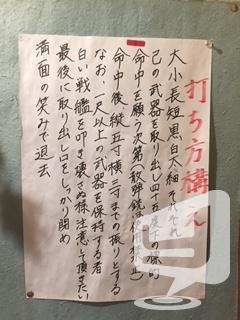 打ち方構え
大小長短黒白太細それぞれ
己の武器を取り出し四十五度下の標的
命中を願う次第(散弾銃は使用禁止)
命中後縦五寸横三寸までの振りとする
なお、一尺以上の武器を保持する者
白い戦艦を叩き壊さぬ様注意して頂きたい
最後に取り出し口をしっかり閉め
満面の笑みで退去